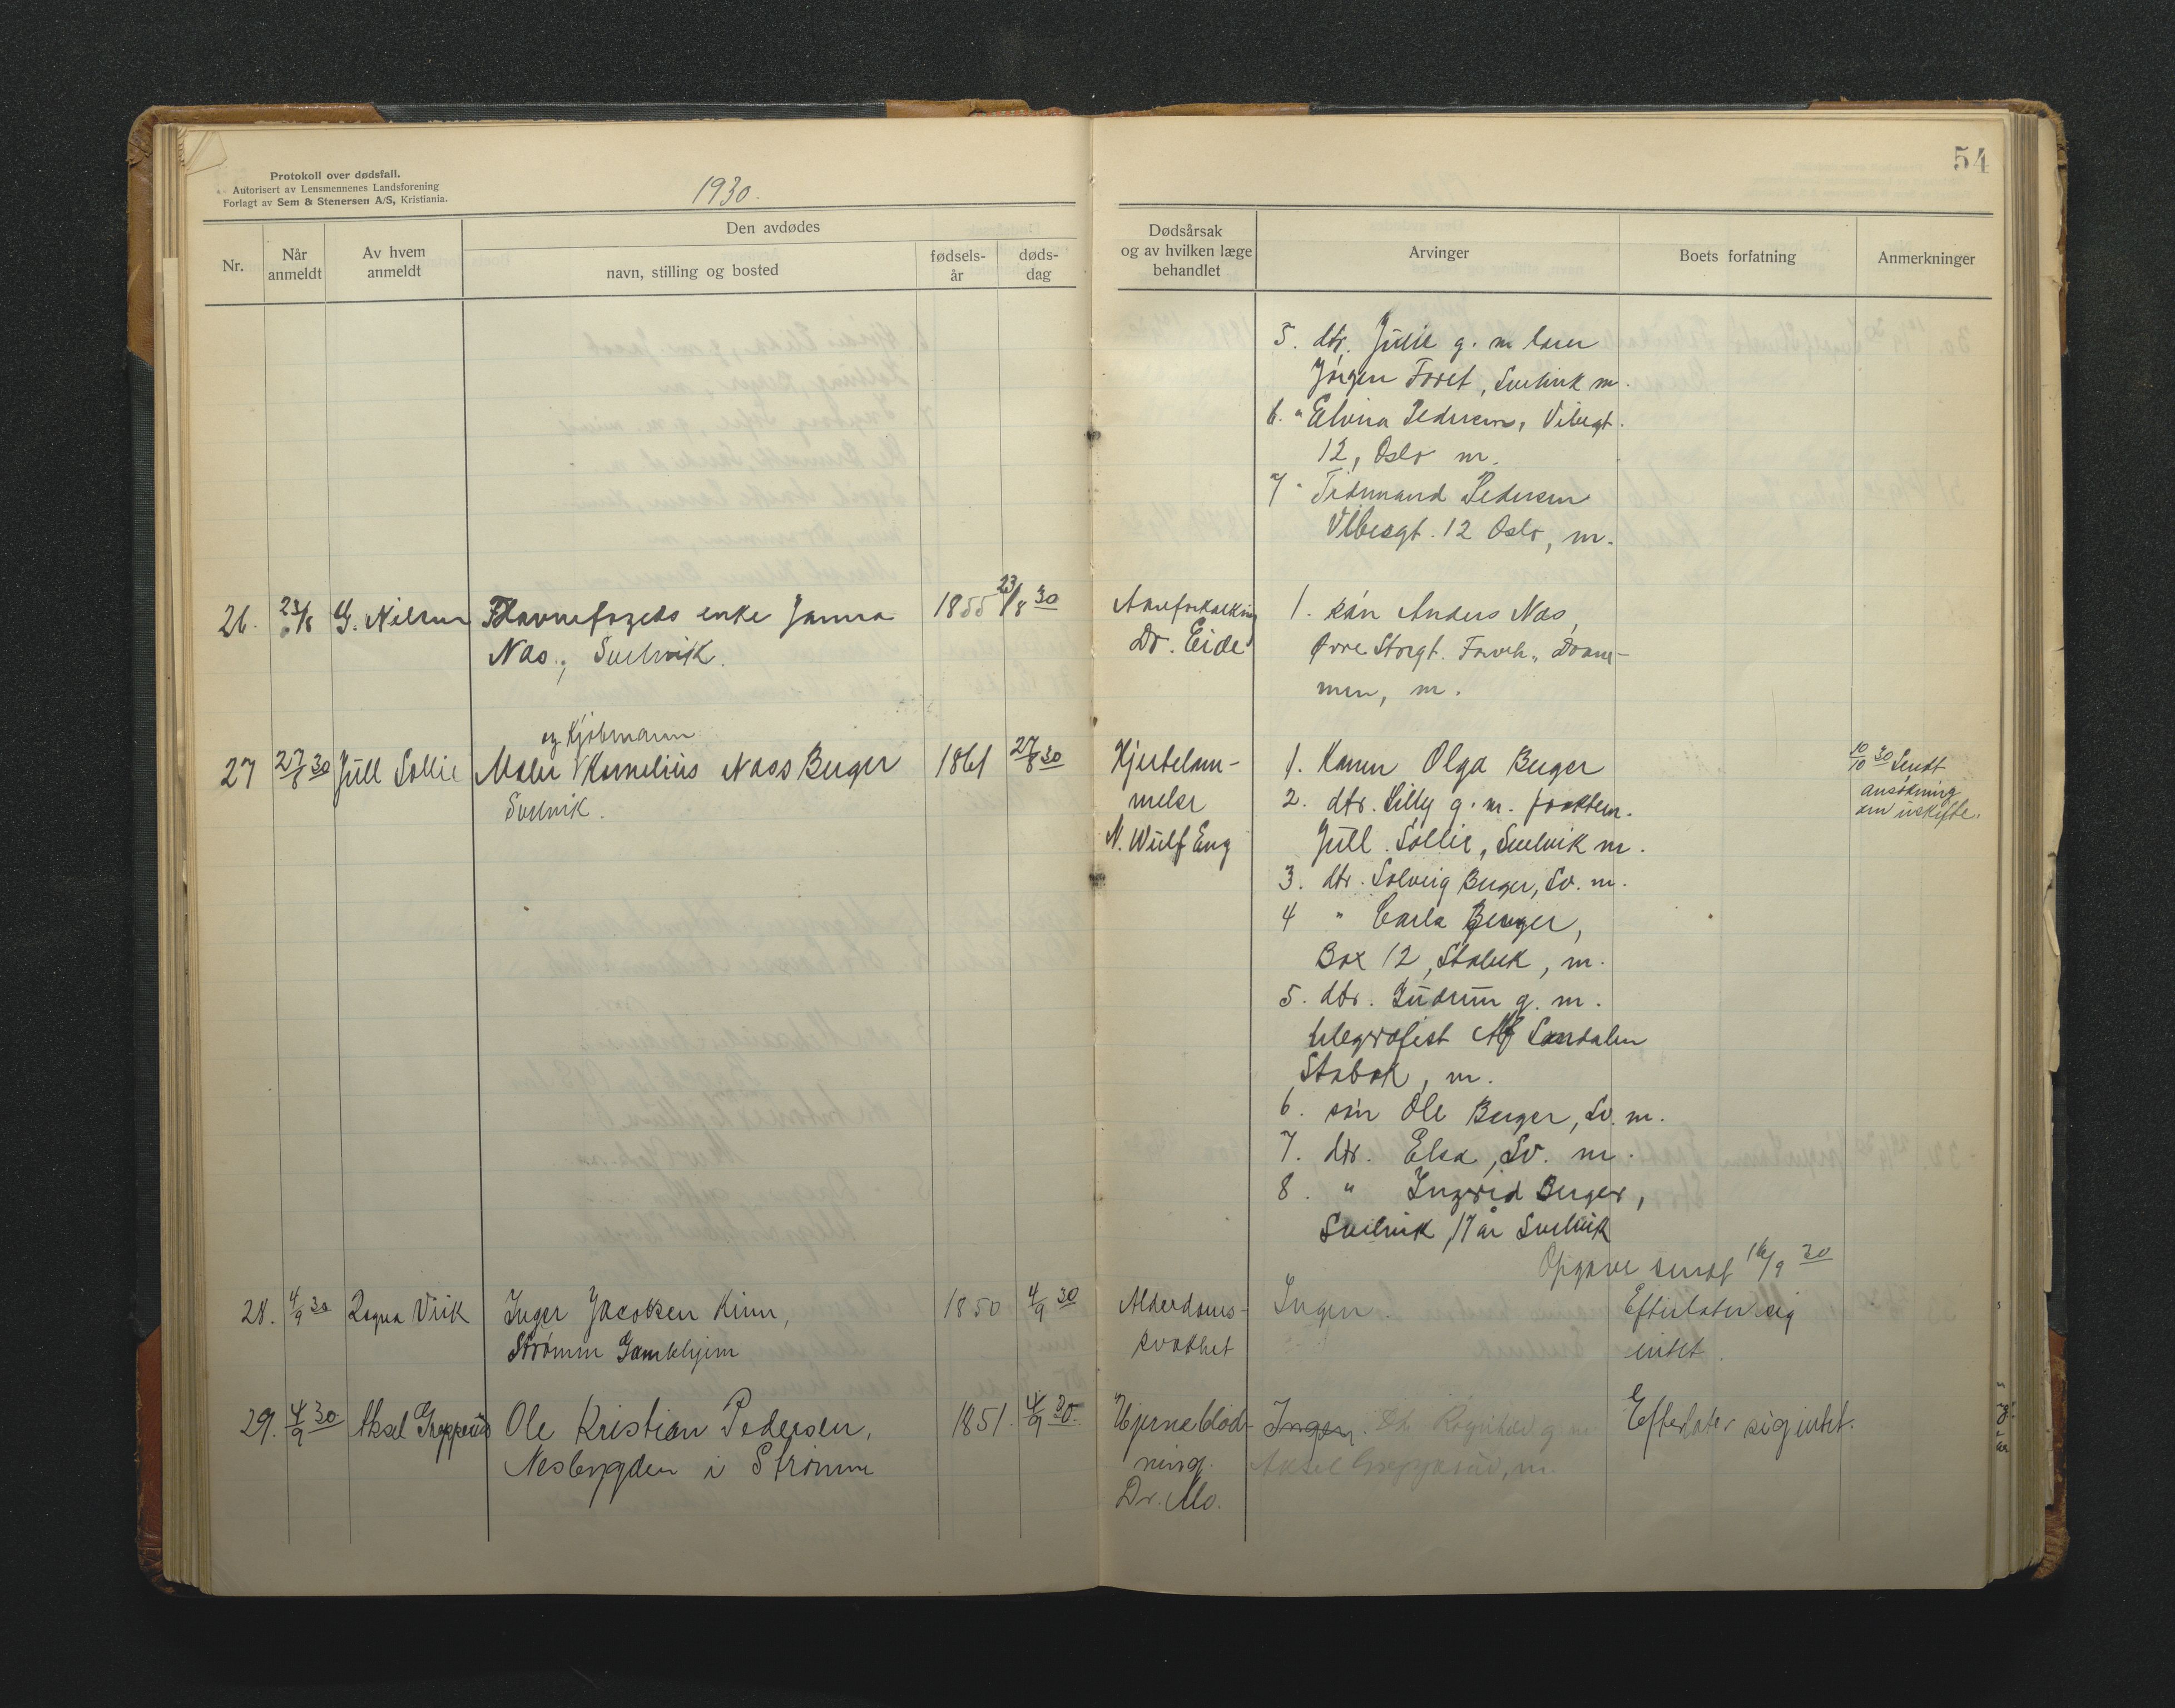 54
Protokoll over dødsfall.
Autorisert av Lensmennenes Landsforening
Forlagt av Sem & Stenersen A/S, Kristiania.
1930.
Nr.
Når anmeldt
Av hvem anmeldt
Den avdødes
navn, stilling og bosted
fødsels-år
døds-dag
Dødsårsak
og av hvilken læge
behandlet
Arvinger
Boets forfatning
Anmerkninger
5. dtr. Julie g. m.
Jörgen Foret, Svelvik m.
6. " Elvina Pedersen, Vibesgt.
12, Oslo m.
7 " Tidemand Pedersen
Vibesgt. 12 Oslo, m.
26. 23/8 G. Nilsen Havnefogeds enke Janna 1855 23/8 30 Aareforkalkning 1. sön Anders Næs,
Næs, Svelvik. Dr. Eide Övre Storgt. Dram-
men, m.
og Kjöbmann
27 27/8 30 Jull Sollie Maler Kornelius Næss Berger 1861 27/8 30 Hjertelam- 1. Konen Olga Berger
Svelvik. melse 2. dtr. Lilly g. m.
N. Wulf Eng Jull Sollie, Svelvik m.
10/10 30 Sendt
ansökning
om uskifte.
3. dtr. Solveig Berger, Sv. m.
4 " Carla Berger,
Box 12, Stabek, m.
5. dtr. Gudrun g. m.
telegrafist Alf Sandalen
Stabæk, m.
6. sön Ole Berger, Sv. m.
7. dtr. Elsa, Sv. m.
8. " Ingrid Berger,
Svelvik 17 år Svelvik
Opgave sendt 16/9 30
28. 4/9 30 Ragna Virik Inger Jacobsen Kinn, 1850 4/9 30 Alderdoms- Ingen. Efterlater sig
Strömm Gamlehjem svakhet intet.
29. 4/9 30 Aksel Grepperud Ole Kristian Pedersen, 1851. 4/9 30. Hjerneblöd- Ingen. Dtr. Ragnhild g. m. Efterlater sig intet.
Nesbygden i Strömm ning. Aksel Grepperud, m.
Dr. Mo.